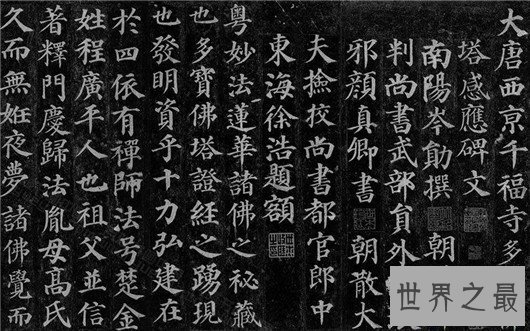 大唐西京千福寺多
塔感應碑文
南陽岑勛撰 朝
判尚書武部員外
邪顏真卿書 朝散大
夫撿校尚書都官郎中
東海徐浩題額
粵妙法蓮華諸佛之秘藏
也多寶佛塔證經之踴現
也發明資乎十力弘建在
於四依有禪師法号楚金
姓程廣平人也祖父並信
著釋門慶歸法胤母高氏
久而無姙夜夢諸佛覺而
世界之最